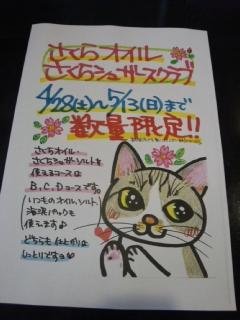 さくらオイル
さくらシュガースクラブ
4/28(土)〜5/13(日)まで
数量限定!!
さくらオイル・
さくらシュガーソルトを
使えるコースは
B,C,Dコースです。
(いつものオイル、ソルト
海泥パックも
使えます♪
どちらも仕上がりは
しっとりです